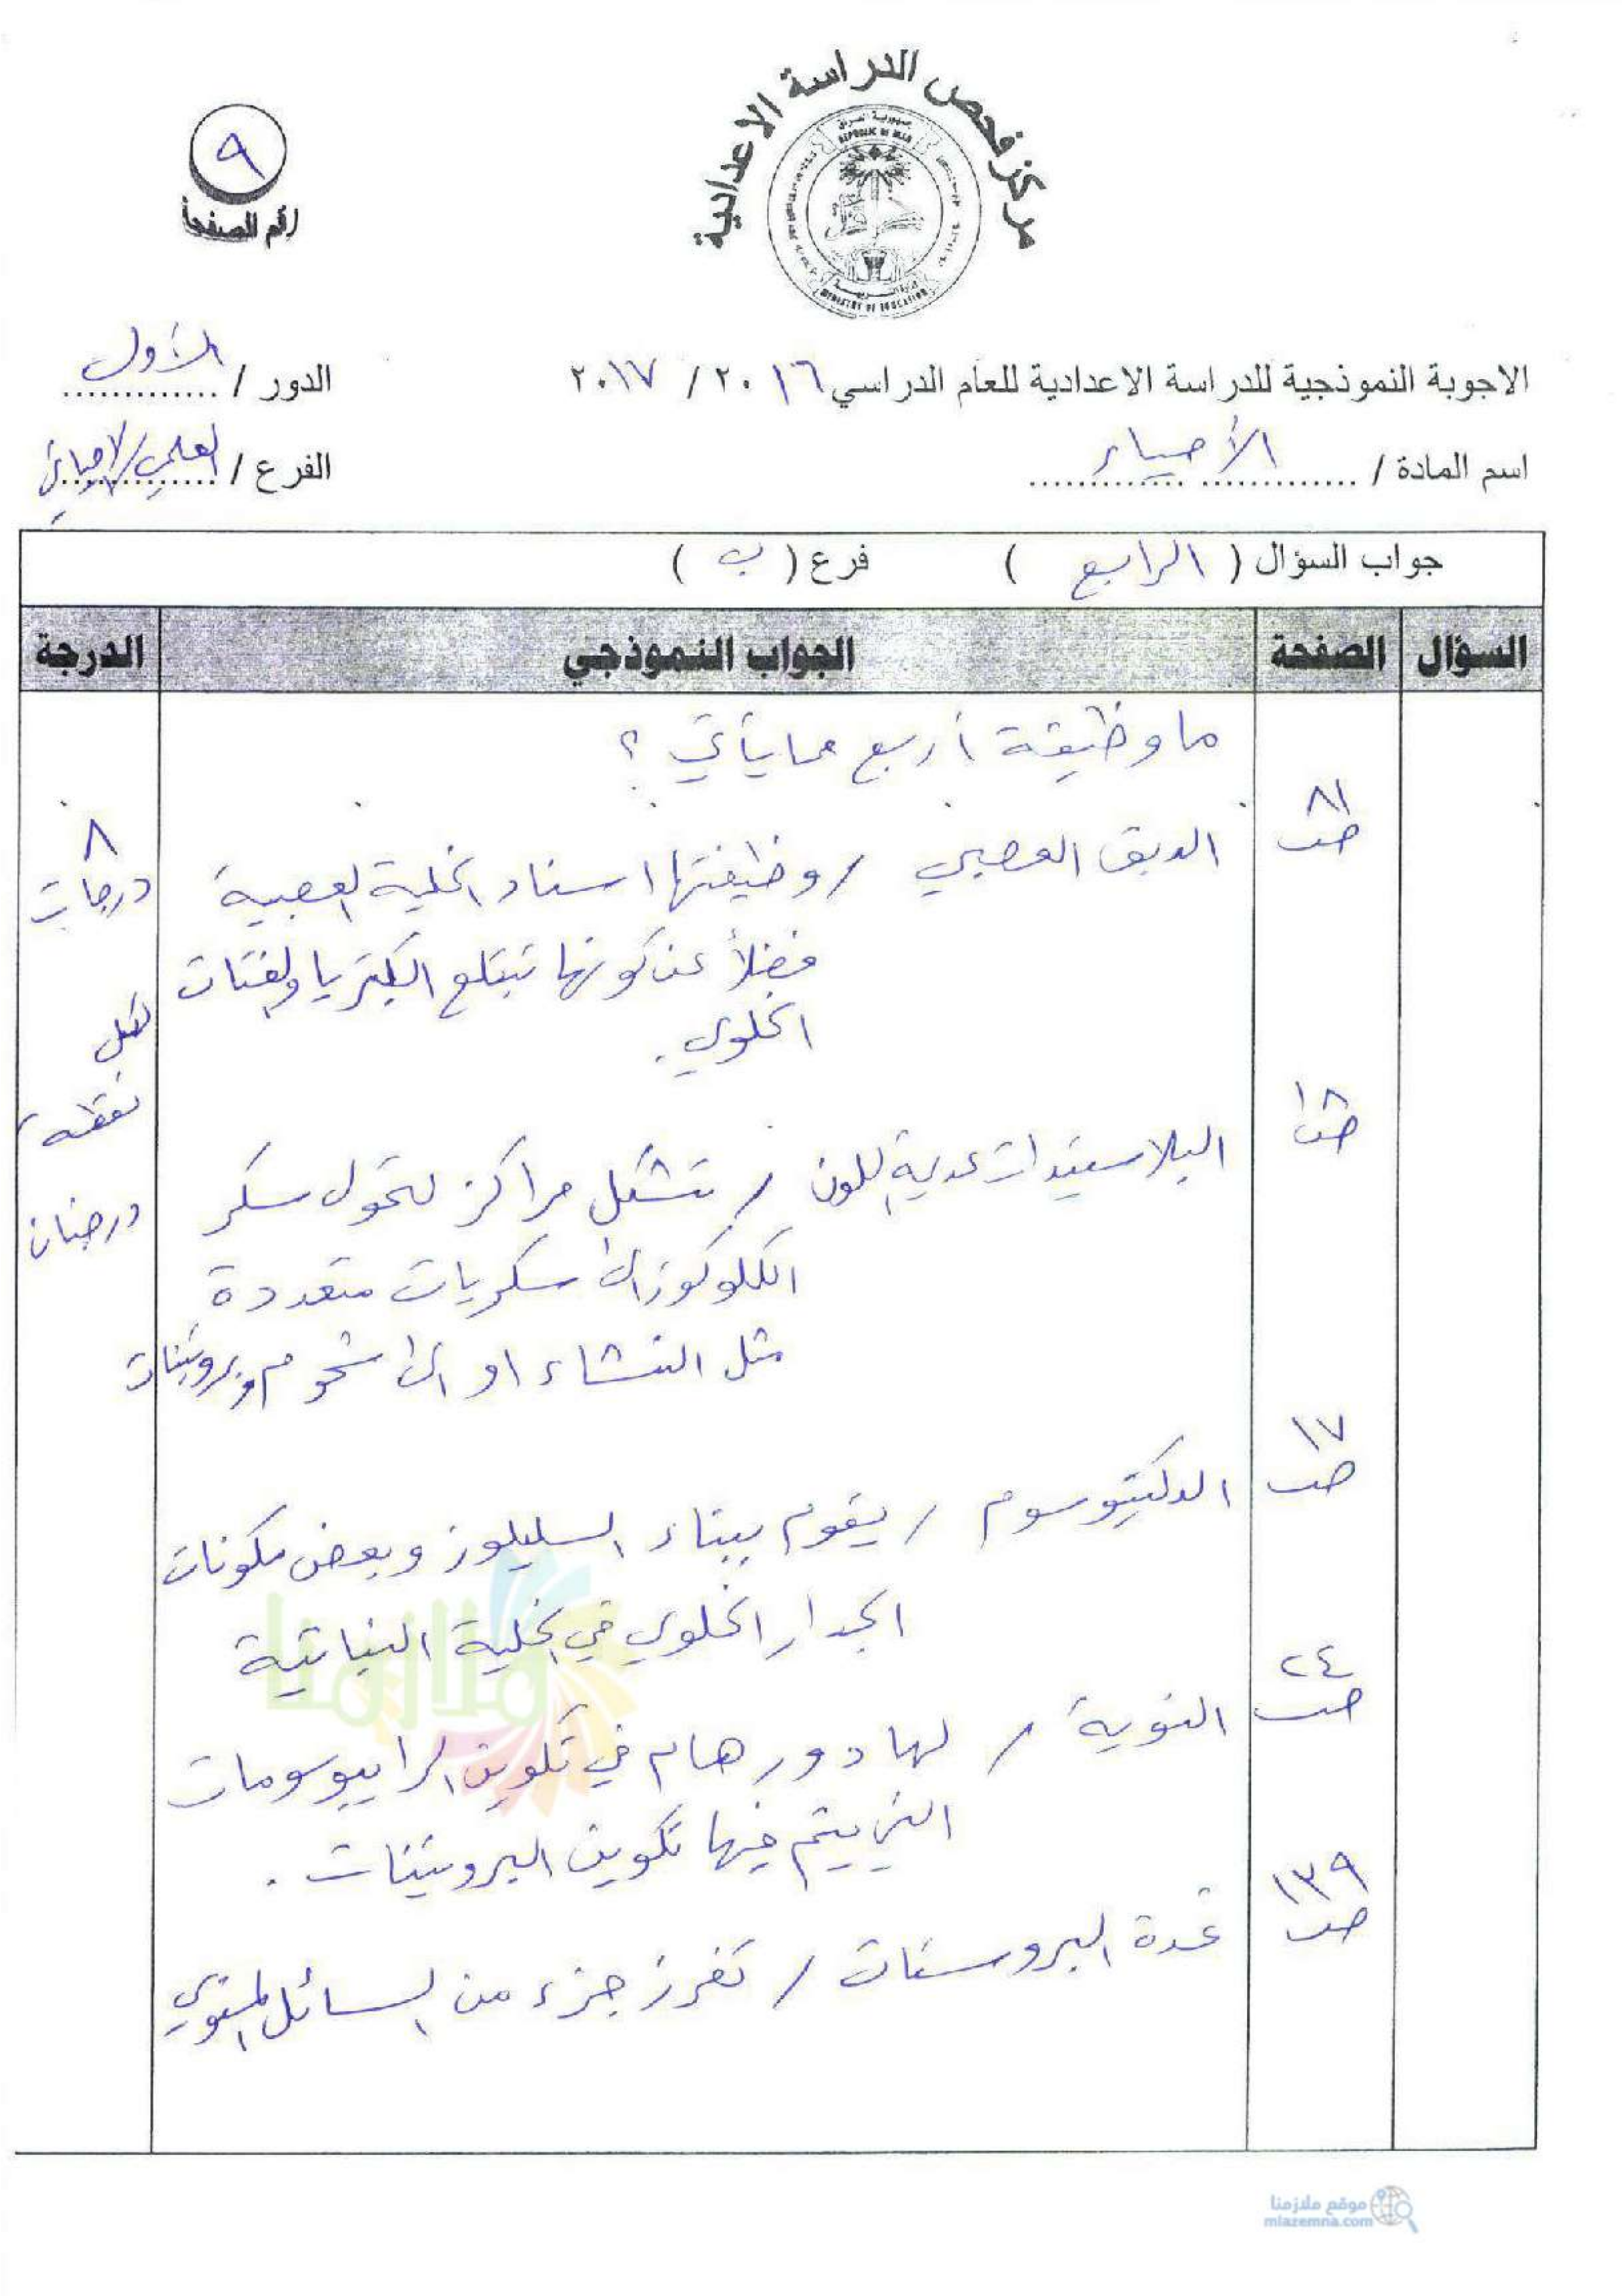 مركز فحص الدراسة الاعدادية
جمهورية العراق
REPUBLIC OF IRAQ
وزارة التربية
MINISTRY OF EDUCATION
٩
رقم الصفحة
الاجوبة النموذجية للدراسة الاعدادية للعام الدراسي ٢٠١٦ / ٢٠١٧
الدور / الأول
اسم المادة / الأحياء
الفرع / العلمي/الاحيائي
جواب السؤال ( الرابع ) فرع ( ب )
السؤال الصفحة الجواب النموذجي الدرجة
ما وظيفة أربع مما يأتي ؟
٨١
ص
الدبق العصبي / وظيفتها اسناد الخلية العصبية
٨
درجات
فضلاً عن كونها تبتلع البكتريا والفتات
الخلوي .
لكل
نقطة
درجتان
١٨
ص
البلاستيدات عديمة اللون / تشكل مراكز لتحول سكر
الكلوكوز الى سكريات متعددة
مثل النشاء او الى شحوم وبروتينات
١٧
ص
الدكتيوسوم / يقوم ببناء السليلوز وبعض مكونات
الجدار الخلوي في الخلية النباتية
٢٤
ص
النوية / لها دور هام في تكوين الرايبوسومات
التي يتم فيها تكوين البروتينات .
١٣٩
ص
غدة البروستات / تفرز جزء من السائل المنوي
ملازمنا
موقع ملازمنا
mlazemna.com